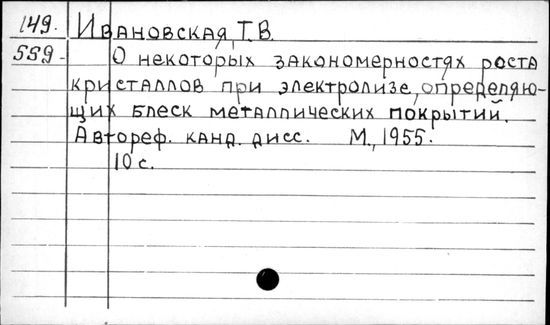 149. Ивановская, Т.В.
559- О некоторых закономерностях роста
кристаллов при электролизе, определяю-
щих блеск металлических покрытий.
Автореф. канд. дисс. М., 1955.
10 с.